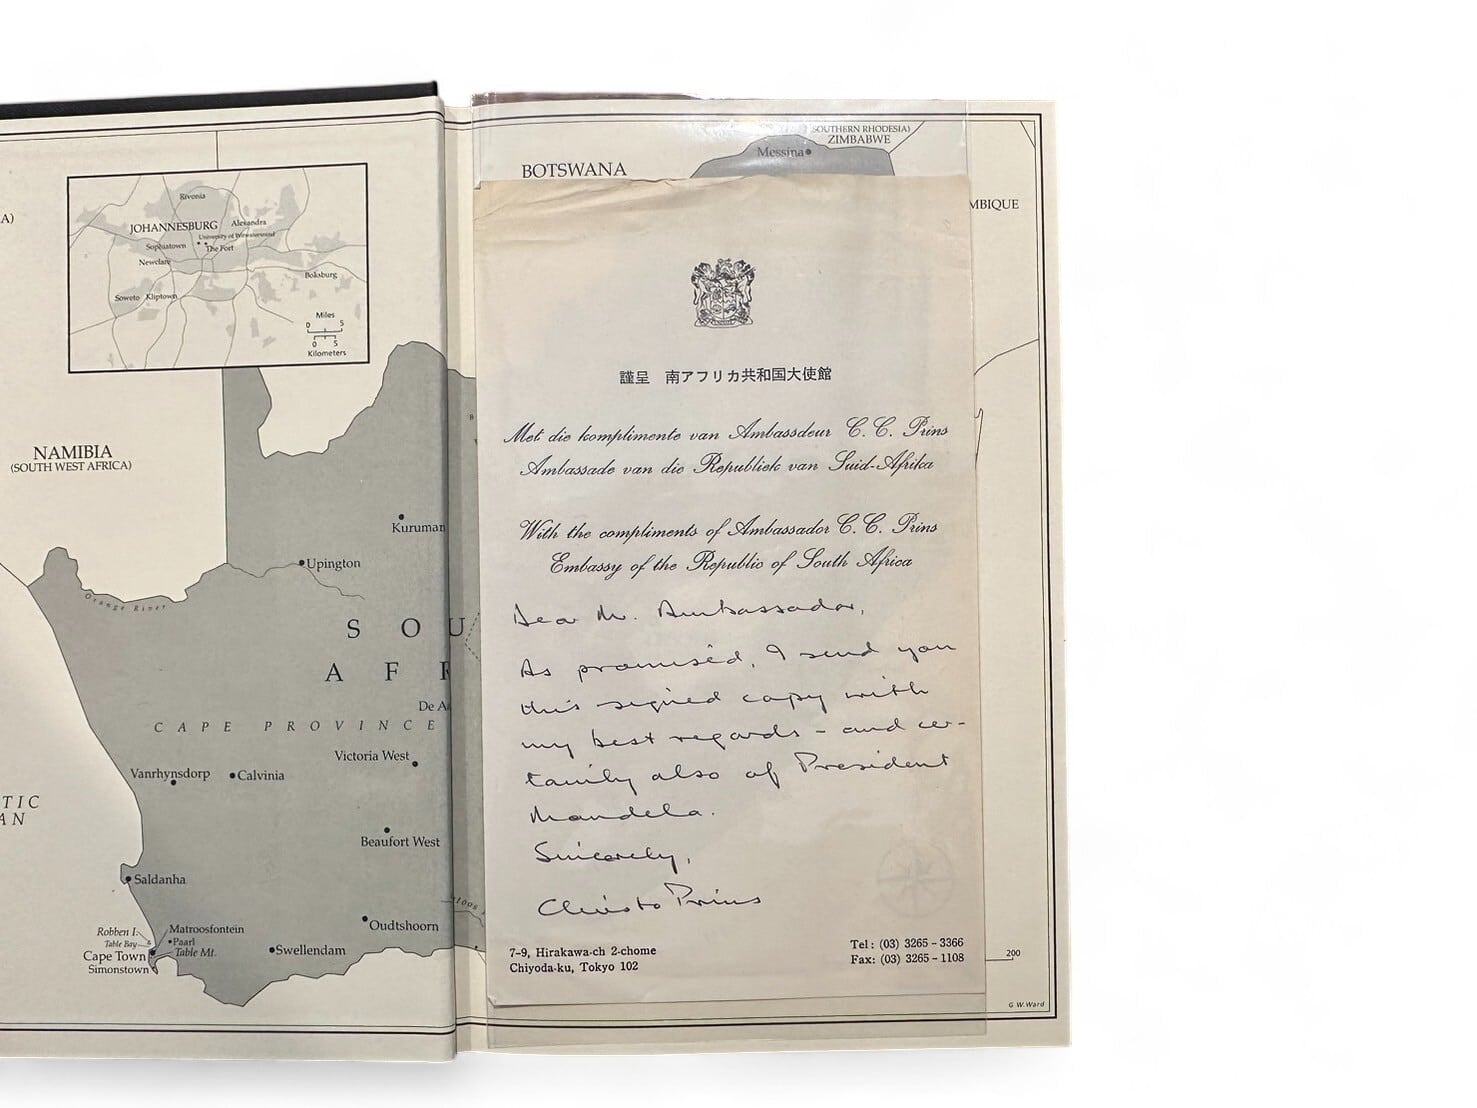 A)
Rivonia
JOHANNESBURG
Alexandra
University of Witwatersrand
Sophiatown
The Fort
Newclare
Boksburg
Soweto
Kliptown
Miles
0 5
0 5
Kilometers
NAMIBIA
(SOUTH WEST AFRICA)
Kuruman
Upington
Orange River
S O U
A F R
De A
CAPE PROVINCE
Victoria West
Vanrhynsdorp
Calvinia
TIC
AN
Beaufort West
Saldanha
Oudtshoorn
Robben I.
Matroosfontein
Table Bay
Paarl
Cape Town
Table Mt.
Simonstown
Swellendam
(SOUTHERN RHODESIA)
ZIMBABWE
Messina
BOTSWANA
MBIQUE
謹呈 南アフリカ共和国大使館
Met die komplimente van Ambassdeur C. C. Prins
Ambassade van die Republiek van Suid-Afrika
With the compliments of Ambassador C. C. Prins
Embassy of the Republic of South Africa
Dear Mr. Ambassador,
As promised, I send you
this signed copy with
my best regards - and cer-
tainly also of President
Mandela.
Sincerely,
Christo Prins
7-9, Hirakawa-ch 2-chome
Chiyoda-ku, Tokyo 102
Tel: (03) 3265-3366
Fax: (03) 3265-1108
200
G.W.Ward